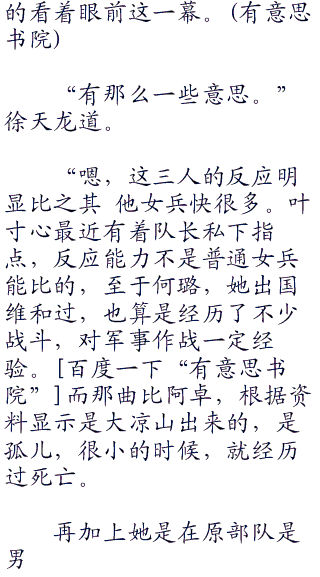 的看着眼前这一幕。(有意思
书院)
“有那么一些意思。”
徐天龙道。
“嗯，这三人的反应明
显比之其 他女兵快很多。叶
寸心最近有着队长私下指
点，反应能力不是普通女兵
能比的，至于何璐，她出国
维和过，也算是经历了不少
战斗，对军事作战一定经
验。[百度一下“有意思书
院”]而那曲比阿卓，根据资
料显示是大凉山出来的，是
孤儿，很小的时候，就经历
过死亡。
再加上她是在原部队是
男